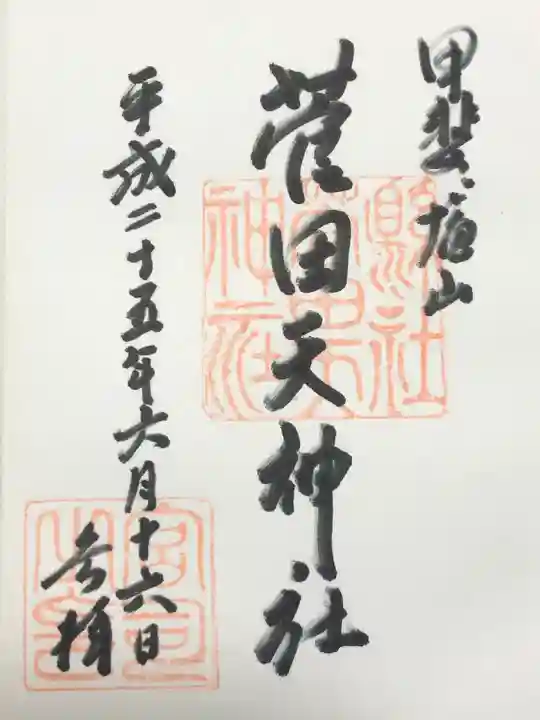 甲斐塩山
菅田天神社
平成二十五年六月十六日
参拝
縣社
神社